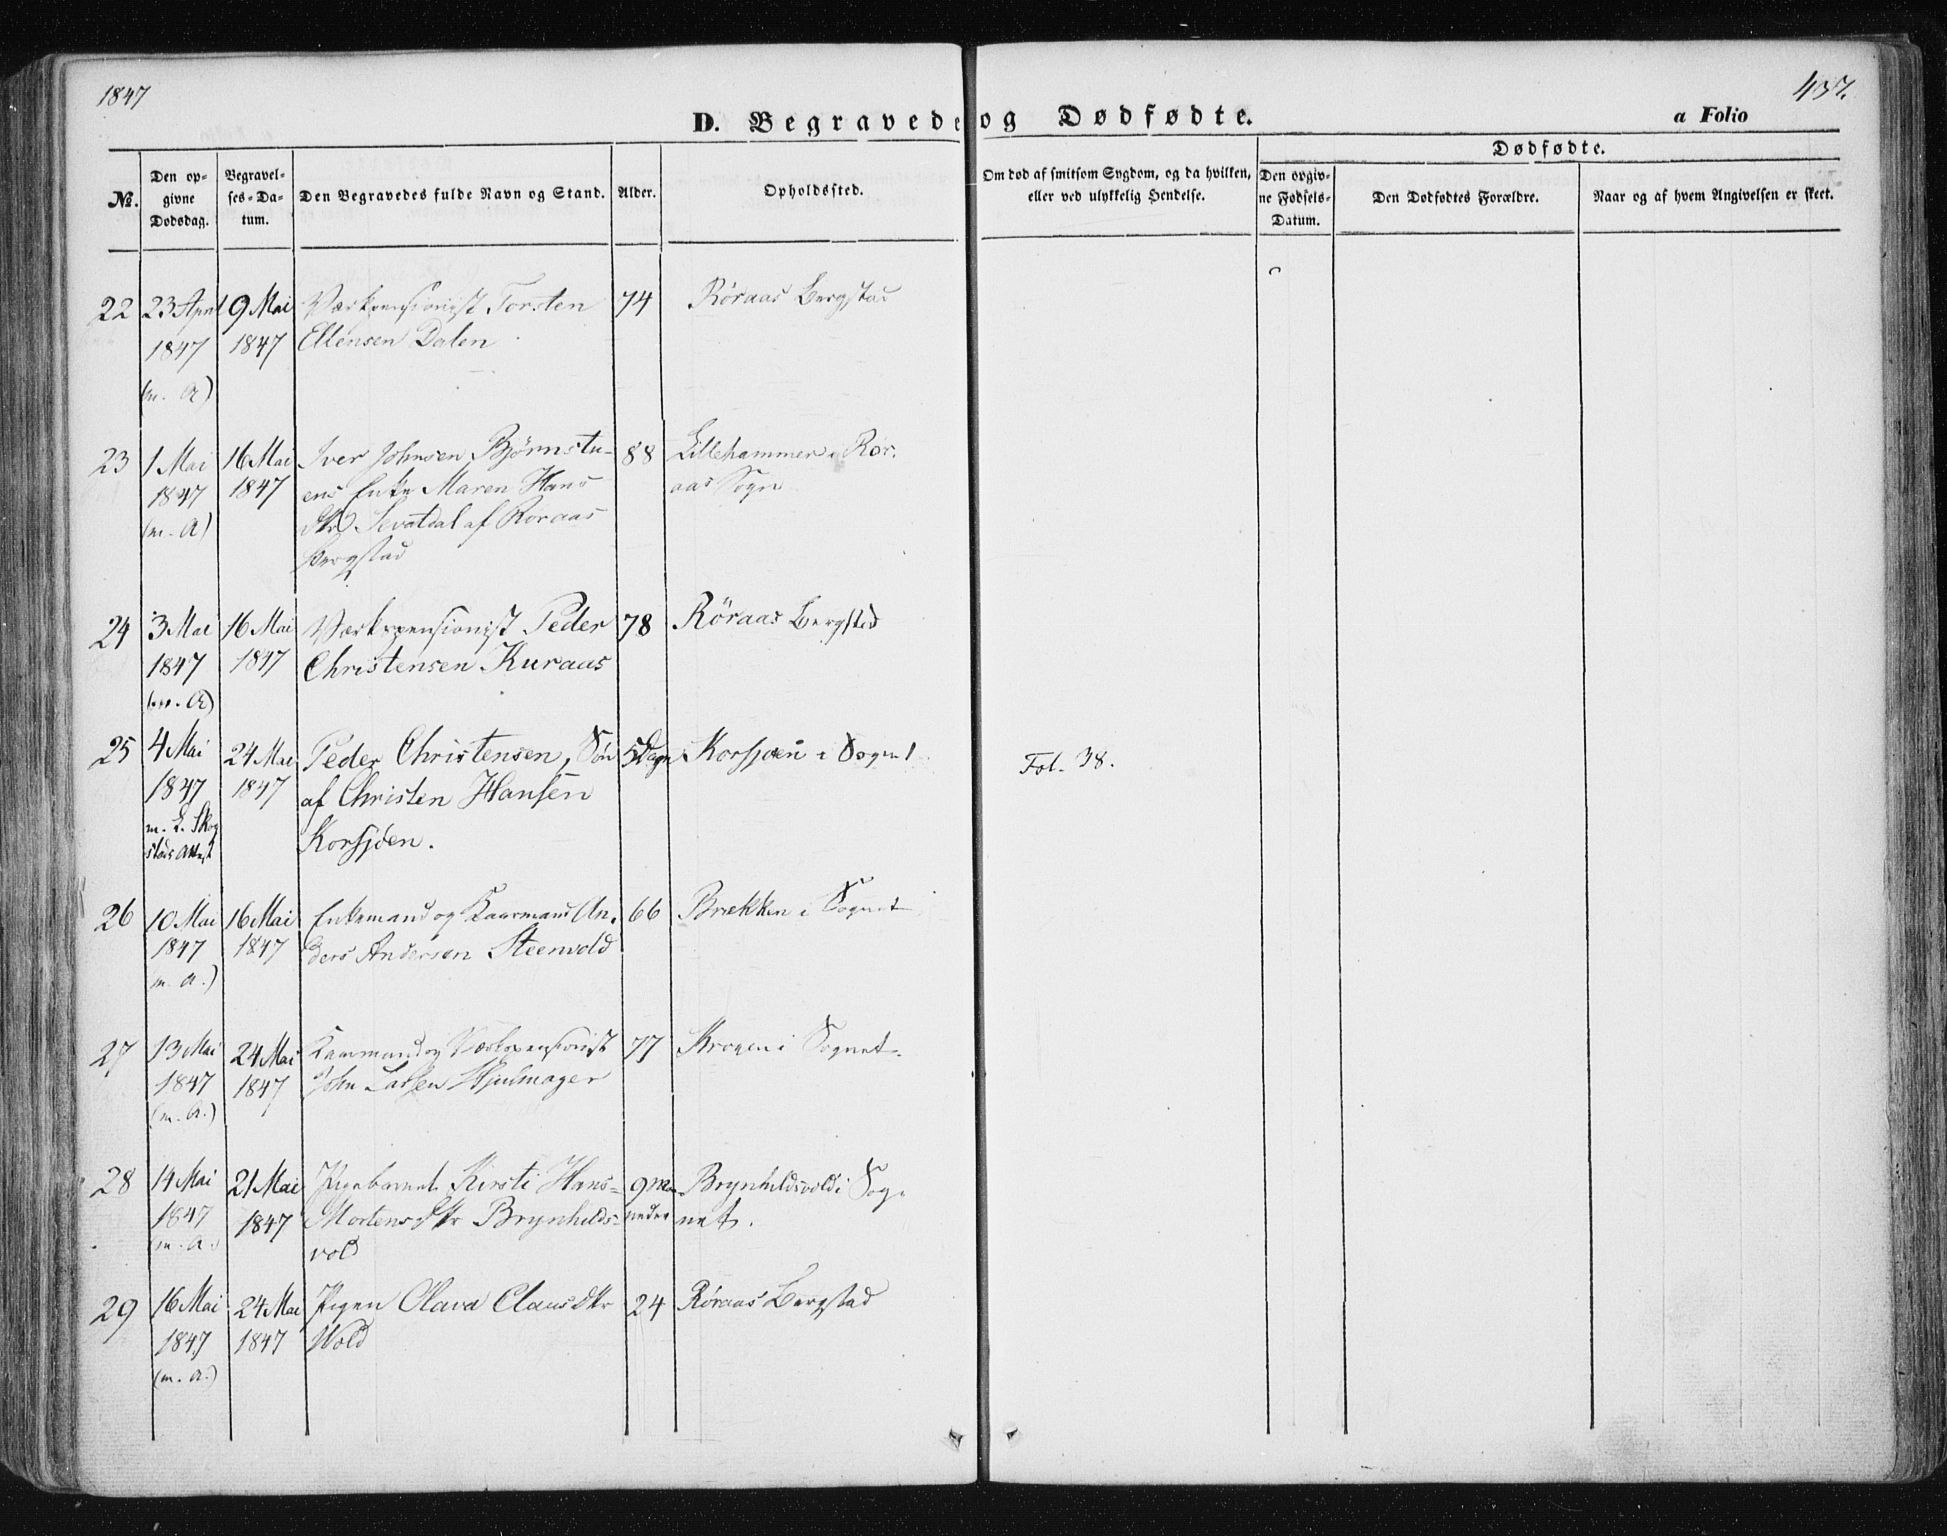 1847
437.
D. Begravede og Dødfødte.
a Folio
Dødfødte.
No.
Den op-
givne
Dødsdag.
Begravel-
ses-Da-
tum.
Den Begravedes fulde Navn og Stand.
Alder.
Opholdssted.
Om død af smitsom Sygdom, og da hvilken,
eller ved ulykkelig Hendelse.
Den opgiv-
ne Fødsels-
Datum.
Den Dødfødtes Forældre.
Naar og af hvem Angivelsen er skeet.
22 23 April 9 Mai Værkpensionist Torsten 74 Röraas Bergstad
1847 1847 Ellensen Dalen
(m. A)
23 1 Mai 16 Mai Iver Johnsen Björnstu- 88 Lillehammer i Rör-
1847 1847 ens Enke Maren Hans aas Sogn
(m. A) dtr Sevatdal af Röraas
Bergstad
24 3 Mai 16 Mai Værkspensionist Peder 78 Röraas Bergstad
1847 1847 Christensen Kuraas
(m. A)
25 4 Mai 24 Mai Peder Christensen, Sön 5 Dage Korssjöen i Sognet Fol. 38.
1847 1847 af Christen Hansen
m. E. Skog Korssjöen.
stads Attest
26 10 Mai 16 Mai Enkemand og Kaarmand An- 66 Brækken i Sognet
1847 1847 ders Andersen Steenvold
(m. A.)
27 13 Mai 24 Mai Kaarmand og Værkspensionist 77 Krogen i Sognet.
1847 1847 John Larsen Hjulmager
(m. A.)
28 14 Mai 21 Mai Pigebarnet Kirsti Hans- 9 Maa- Brynhildsvold i Sog-
1847 1847 Mortensdtr Brynhilds- neder net.
(m. A.) vold
29 16 Mai 24 Mai Pigen Olava Clausdtr 24 Röraas Bergstad
1847 1847 Wold
(m. A.)